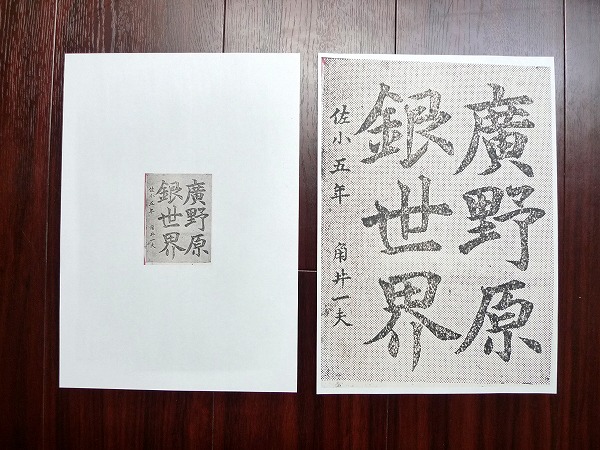 廣野原
銀世界
佐小五年 角井一夫
廣野原
銀世界
佐小五年 角井一夫